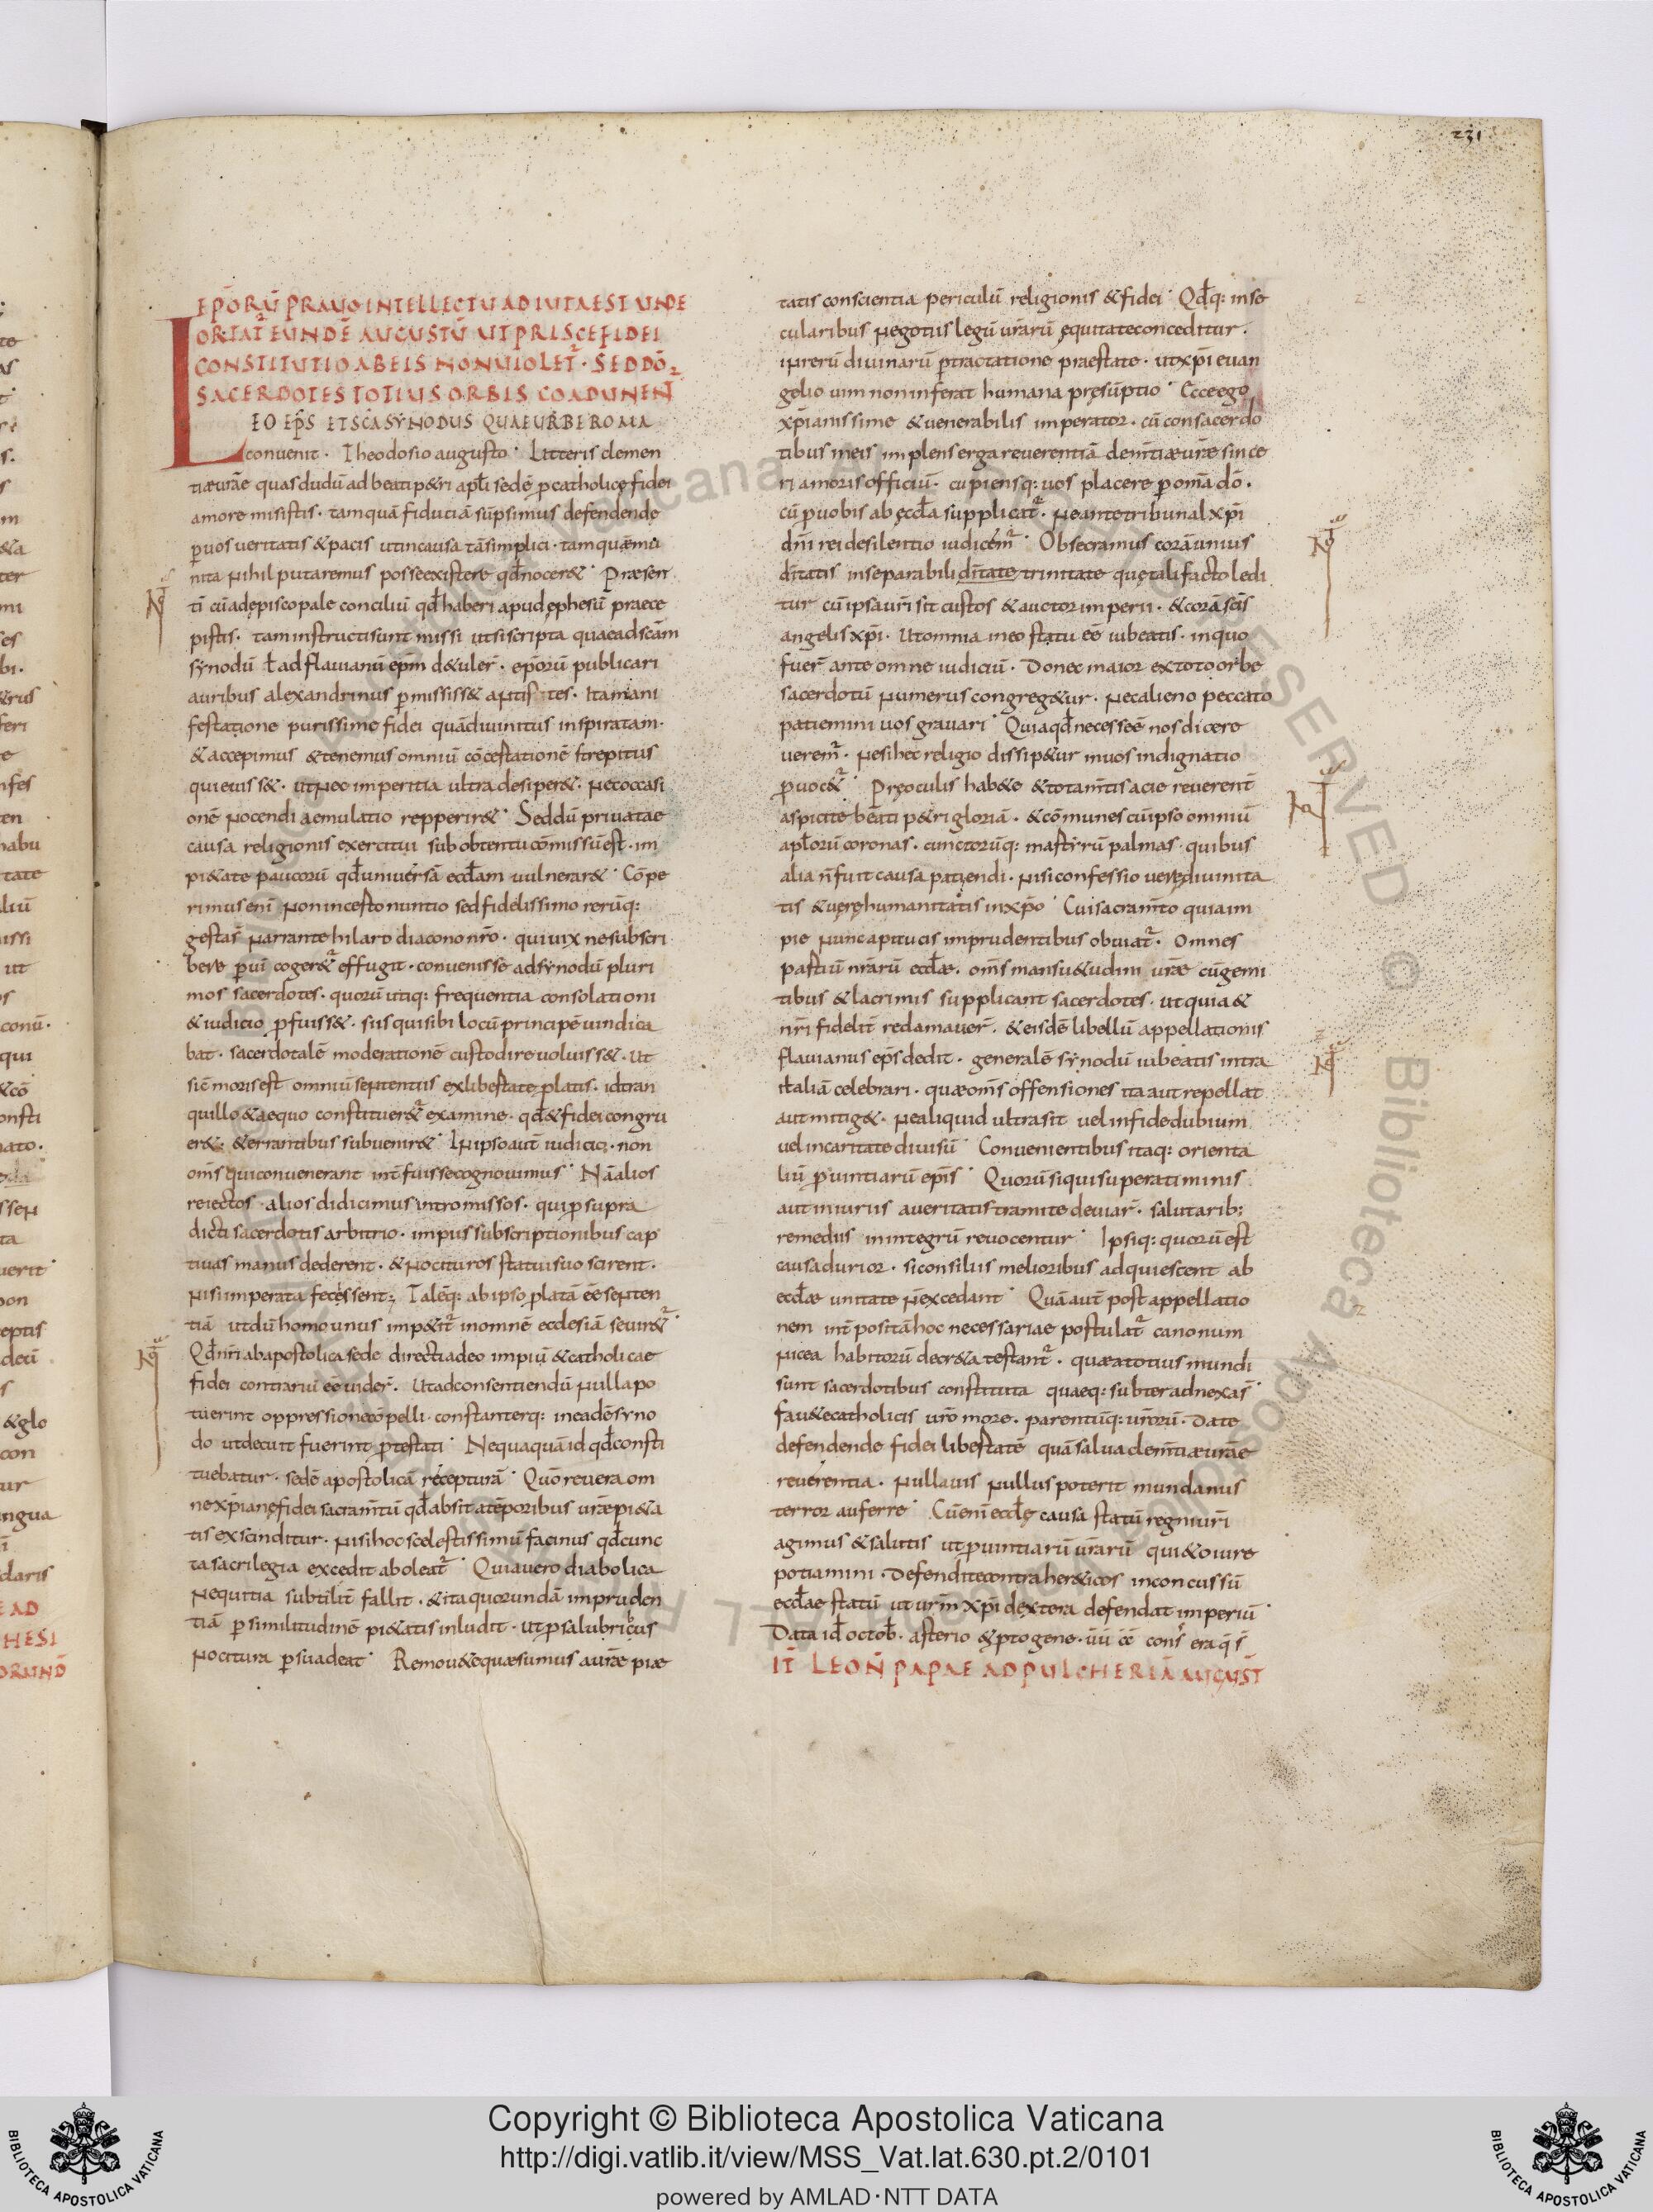 231
EPŌRŪ PRAVO INTELLECTU ADIUTA EST UNDE
ORTAT̄ EUNDĒ AUGUSTŪ UT PRISCE FIDEI
CONSTITUTIO AB EIS NON VIOLET̄ · SED DŌ
SACERDOTES TOTIUS ORBIS COADUNENT
LEO EP̄S ET SC̄A SYNODUS QUAE URBE ROMA
convenit · Theodosio augusto · Litteris clemen
tiæ vr̄ae quas dudū ad beati p&ri apl̄i sedē p catholicę fidei
amore misistis · tamquā fiduciā sūpsimus defendende
p vos veritatis & pacis ut in causa tā simplici · tamquā mu
nita nihil putaremus posse existere qd̄ nocer& · Præsen
tī cū ad episcopale conciliū qd̄ haberi apud ephesū praece
pistis · tam instructi sunt missi ut si scripta quae ad scām
synodū t̄ ad flavianū epm̄ d&uler̄ · epōrū publicari
auribus alexandrinus pmisiss& antistes · ita mani
festatione purissime fidei quā divinitus inspiratam ·
& accepimus & tenemus omniū cōcestationē strepitus
quieviss& · ut nec imperitia ultra desiper& · nec occasi
onē nocendi aemulatio repperir& · Sed dū privatae
causa religionis exercitui sub obtentu cōmissū est · im
pi&ate paucorū qd̄ universā eccl̄am vulnerar& · Cōpe
rimus enī non incesto nuntio sed fidelissimo rerūq:
gestar̄ narrante hilaro diacono nr̄o · qui vix ne subscri
bere p vim coger& effugit · convenisse ad synodū pluri
mos sacerdotes · quorū utiq: frequentia consolationi
& iudicio pfuiss& · si is qui sibi locū principē vindica
bat · sacerdotalē moderationē custodire voluiss& · ut
sic̄ moris est omniū sententiis ex libestate platis · id tran
quillo & aequo constituer& examine · qd̄ & fidei congru
er& · & errantibus subvenir& · In ipso aut̄ iudicio · non
om̄s qui convenerant int̄fuisse cognovimus · Nā alios
reiectos · alios didicimus intromissos · qui p supra
dicti sacerdotis arbitrio · impiis subscriptionibus cap
tivas manus dederent · & nocituros statui suo scirent ·
nisi imperata fecessent; Talēq: ab ipso platā eē senten
tiā ut dū homo unus imp&it inomnē ecclesiā sevir& ·
Qd̄ nr̄i ab apostolica sede directi adeo impiū & catholicae
fidei contrariū eē vider̄ · Ut ad consentiendū nulla po
tuerint oppressione cōpelli · constanterq: in eadē syno
do ut decuit fuerint ptestati · Nequaquā id qd̄ consti
tuebatur · sedē apostolicā recepturā · Quō revera om
ne xp̄ianę fidei sacram̄tū qd̄ absit a tēporibus vr̄ae pi&a
tis exscinditur · nisi hoc scelestissimū facinus qd̄ cunc
ta sacrilegia excedit aboleat̄ · Quia vero diabolica
nequitia subtilit̄ fallit · & ita quorundā impruden
tiā p similitudinē pi&atis inludit · ut p salubribus
nocitura p suadeat · Remov&e quæsumus a vr̄ae piæ
tatis conscientia periculū religionis & fidei · Qd̄q: in se
cularibus negotiis legū vr̄arū ęquitate conceditur ·
in rerū divinarū ptractatione praestate · ut xp̄i evan
gelio vim non inferat humana pręsūptio · Ecce ego
xp̄ianissime & venerabilis imperator · cū consacerdo
tibus meis implens erga reverentiā clem̄tiæ vr̄æ since
ri amoris officiū · cupiensq: vos placere p omā dō ·
cū p vobis ab ęccl̄a supplicat̄ · ne ante tribunal xp̄i
dn̄i rei de silentio iudicem̄ · Obsecramus corā unius
d̄itatis inseparabili d̄itate trinitate quę tali facto ledi
tur cū ipsa vr̄i sit custos & auctor imperii · & corā scīs
angelis xp̄i · Ut omnia in eo statu eē iubeatis · in quo
fuer̄ ante omne iudiciū · Donec maior ex toto orbe
sacerdotū numerus congreg&ur · nec alieno peccato
patiemini vos gravari · Quia qd̄ necesse ē nos dicere
verem̄ · ne si hec religio dissip&ur in vos indignatio
pvoc& · Prę oculis hab&e & tota m̄tis acie reverent̄
aspicite beati p&ri gloriā · & cōmunes cū ipso omniū
apl̄orū coronas · cunctorūq: mastyrū palmas · quibus
alia n̄ fuit causa patiendi · nisi confessio verę divinita
tis & verę humanitatis in xp̄o · Cui sacram̄to quia im
pie nunc a paucis imprudentibus obviat̄ · Omnes
pastiū nr̄arū eccl̄æ · om̄s mansu&udini vr̄æ cū gemi
tibus & lacrimis supplicant sacerdotes · ut quia &
nr̄i fidelit̄ redamaver̄ · & eisdē libellū appellationis
flavianus ep̄s dedit · generalē synodū iubeatis intra
italiā celebrari · quæ om̄s offensiones ita aut repellat
aut mitig& · ne aliquid ultra sit vel in fide dubium
vel in caritate divisū · Convenientibus itaq: orienta
liū pvintiarū ep̄is · Quorū si qui superati minis
aut iniuriis a veritatis tramite deviar̄ · salutarib;
remediis in integrū revocentur · Ipsiq: quorū est
causa durior · si consiliis melioribus adquiescent ab
eccl̄æ unitate n̄ excedant · Quā aut̄ post appellatio
nem int̄positā hoc necessariae postulat̄ canonum
nicea habitorū decr&a testant̄ · quæ a totius mundi
sunt sacerdotibus constituta quaeq: subter adnexa s̄
fav&e catholicis vr̄o more · parentūq: vr̄orū · Date
defendende fidei libestatē quā salva clem̄tiæ vr̄ae
reverentia · nulla vis nullus poterit mundanus
terror auferre · Cū enī eccl̄ę causa statū regni vr̄i
agimus & salutis ut pvintiarū vr̄arū qui&o iure
potiamini · Defendite contra her&icos inconcussū
eccl̄ae statū ut vr̄m xp̄i dextera defendat imperiū ·
Data id̄ octob̄ · asterio & ptogene · ūū cc̄ cons̄ era q̄ s̄
IT̄ LEON̄ PAPAE AD PULCHERIĀ AUGUST̄
Copyright © Biblioteca Apostolica Vaticana
http://digi.vatlib.it/view/MSS_Vat.lat.630.pt.2/0101
powered by AMLAD·NTT DATA
BIBLIOTECA APOSTOLICA VATICANA
BIBLIOTECA APOSTOLICA VATICANA